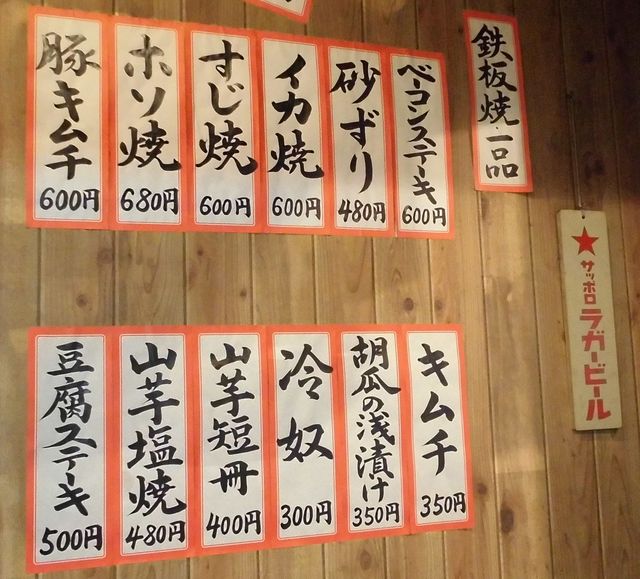 鉄板焼一品
ベーコンステーキ
600円
砂ずり
480円
イカ焼
600円
すじ焼
600円
ホソ焼
680円
豚キムチ
600円
キムチ
350円
胡瓜の浅漬け
350円
冷奴
300円
山芋短冊
400円
山芋塩焼
480円
豆腐ステーキ
500円
★サッポロ
ラガービール